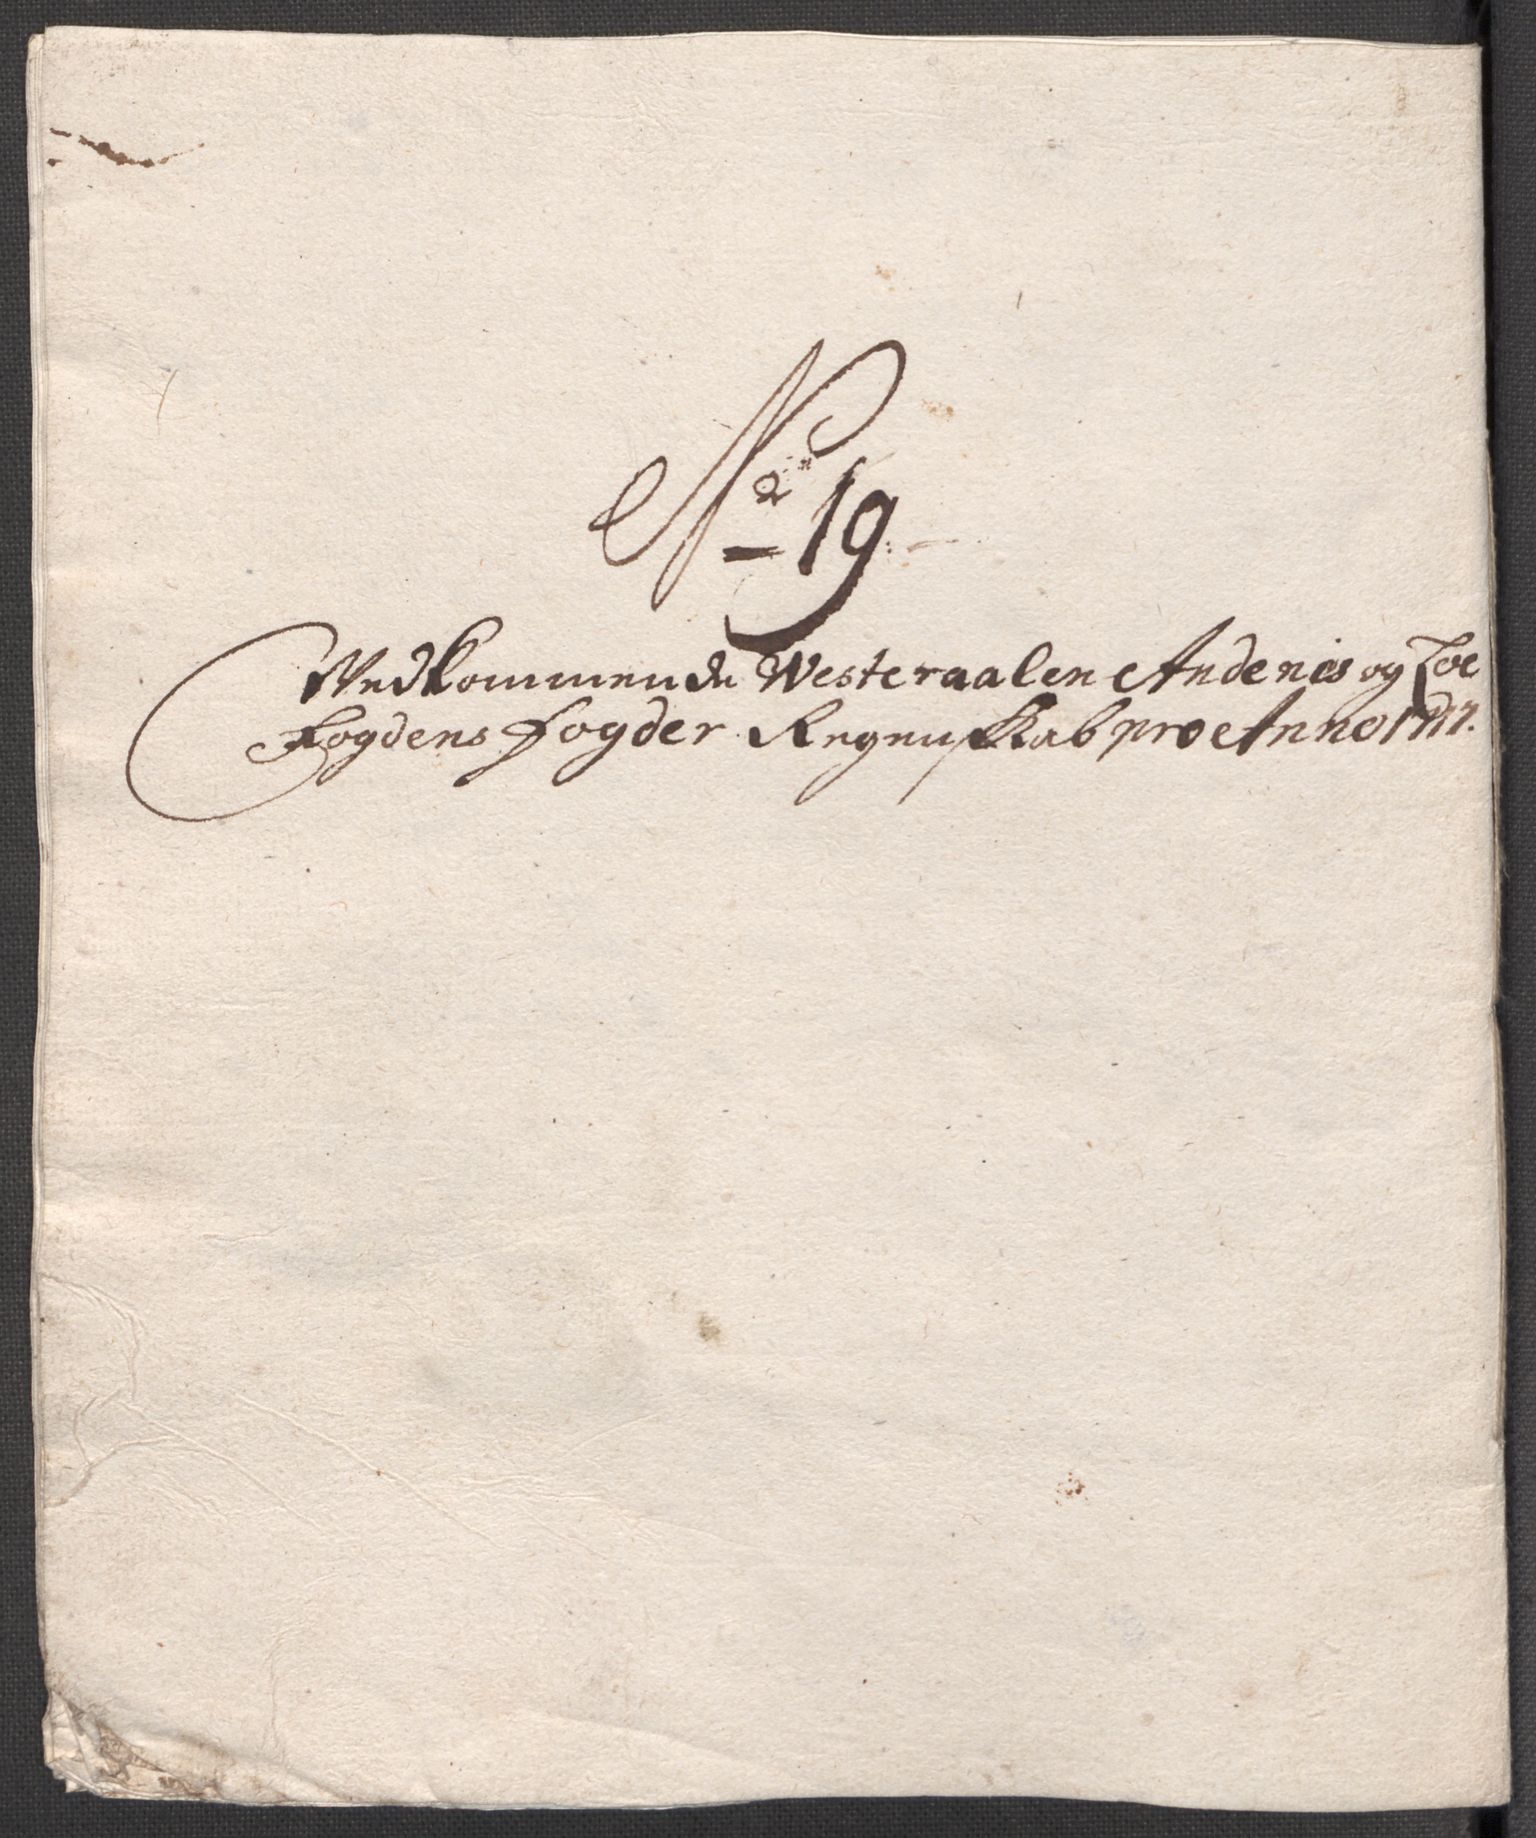 No 19
Vedkommende Westeraalen Andenes og
Fogdens Fogder Regenskab pro Anno 1717.